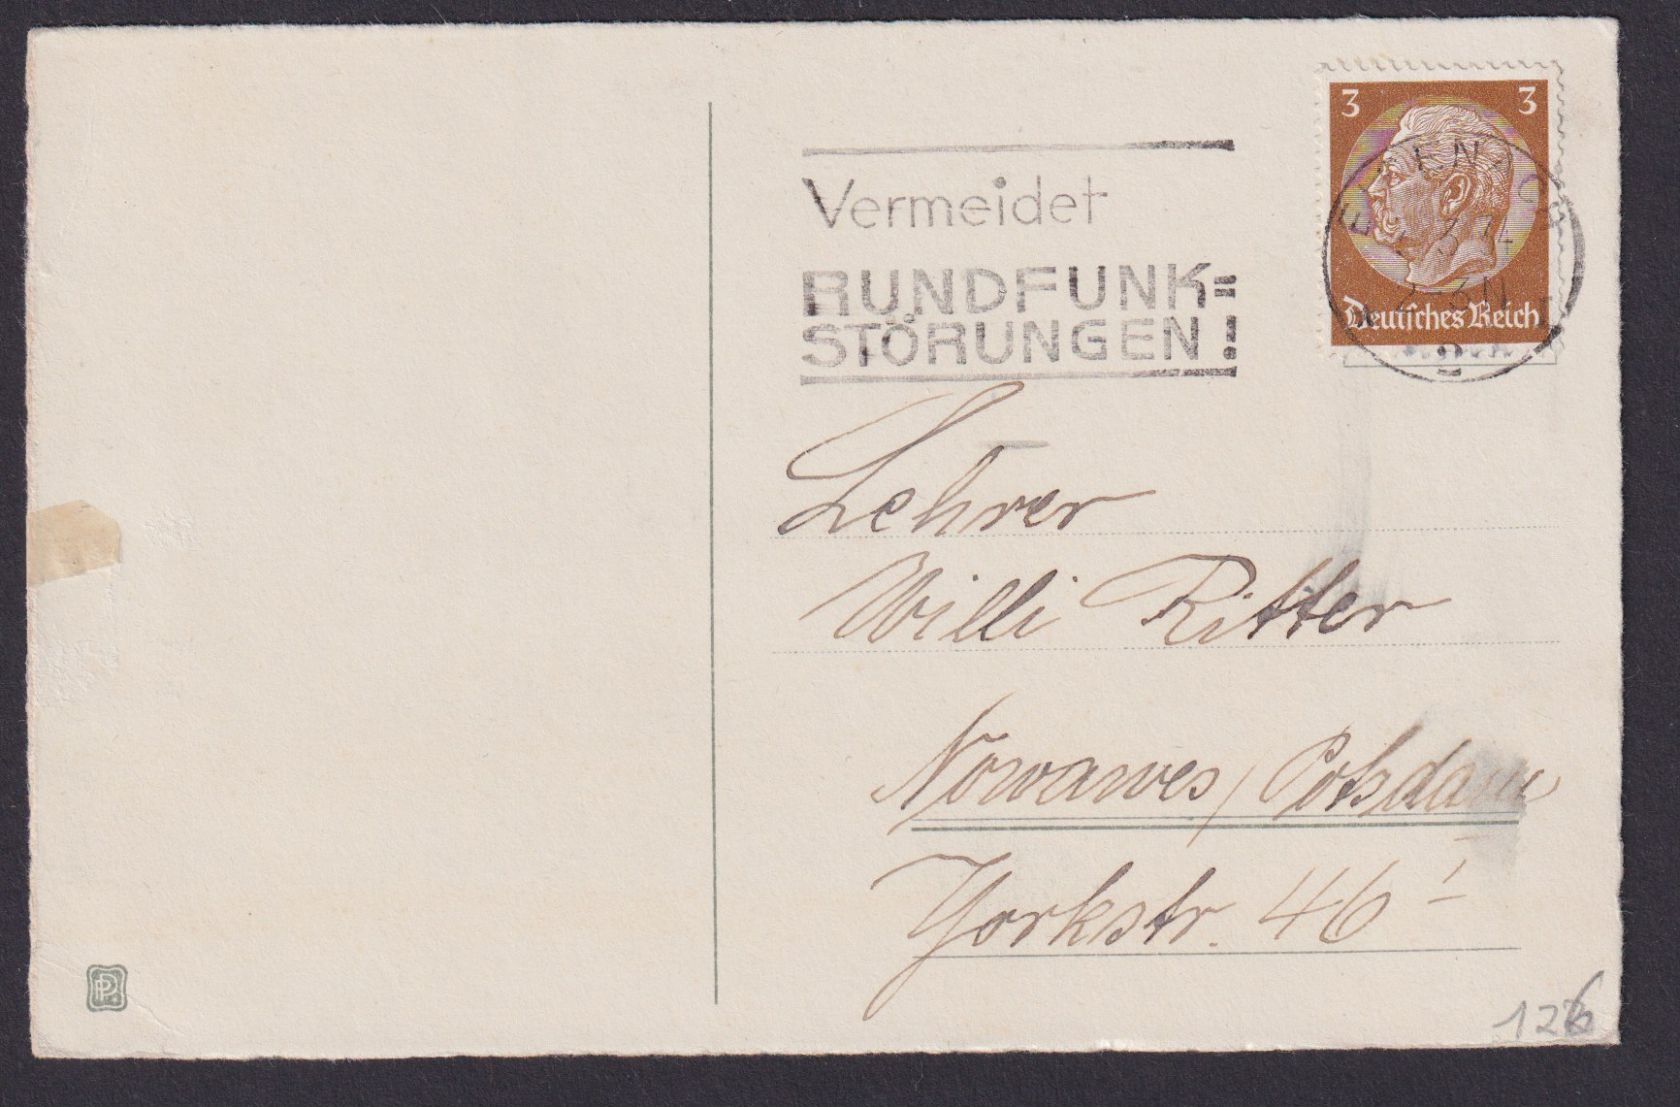 3 3
Deutsches Reich
Vermeidet
RUNDFUNK=
STÖRUNGEN!
Lehrer
Willi Ritter
Nowawes/Potsdam
Yorkstr. 46 I
PP